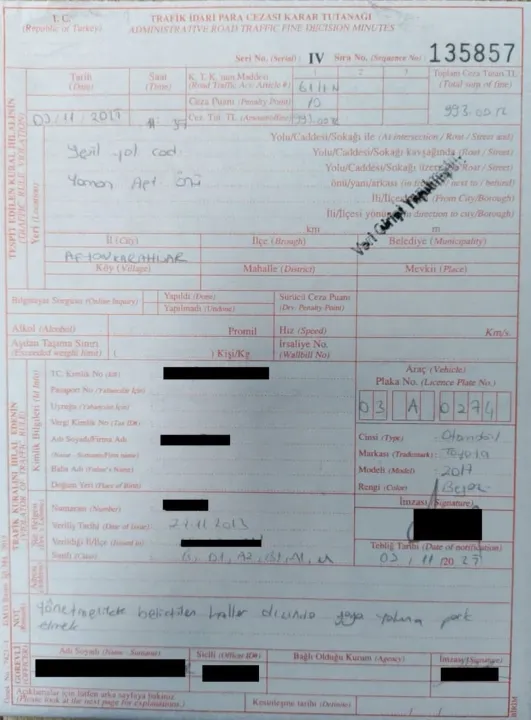 T. C. TRAFİK İDARİ PARA CEZASI KARAR TUTANAĞI
(Republic of Turkey) ADMINISTRATIVE ROAD TRAFFIC FINE DECISION MINUTES
Seri No. (Serial) IV Sıra No. (Sequence No) 135857
Tarih (Date) Saat (Time) K. T. K. nun Maddesi (Road Traffic Act Article #) 1 2 3 Toplam Ceza Tutarı TL (Total sum of fine)
61/1N
Ceza Puanı (Penalty Point) 10
03/11/2027 Cez. Tut. TL 993.00 993.00 TL
TESPİT EDİLEN KURAL İHLALİNİN
(TRAFFIC RULE VIOLATION)
Yeri (Location)
Yolu/Caddesi/Sokağı ile (At intersection / Route / Street and)
Yeşil yol cad. Yolu/Caddesi/Sokağı kavşağında (Rout / Street)
Yolu/Caddesi/Sokağı üzeri (Route / Street)
Yaman Apt. önü önü/yanı/arkası (in front / next to / behind)
İli/İlçesi (From City/Borough)
İli/İlçesi yönü (in direction to city/Borough)
Veri Girişi
km m
İl (City) İlçe (Brough) Belediye (Municipality)
AFYONKARAHİSAR
Köy (Village) Mahalle (District) Mevkii (Place)
Bilgisayar Sorgusu (Online Inquiry) Yapıldı (Done) Sürücü Ceza Puanı
Yapılmadı (Undone) (Drv. Penalty Point)
Alkol (Alcohol) Promil Hız (Speed) Km/s.
Aşılan Taşıma Sınırı İrsaliye No.
(Exceeded weight limit) ( ) Kişi/Kg (Waybill No)
TRAFİK KURALINI İHLAL EDENİN
(VIOLATOR OF TRAFFIC RULE)
Kimlik Bilgileri (Id Info)
TC. Kimlik No (Id#)
Pasaport No (Yabancılar İçin)
Uyruğu (Yabancılar İçin)
Vergi Kimlik No (Tax ID#)
Adı Soyadı/Firma Adı
(Name - Surname/Firm name)
Baba Adı (Father's Name)
Doğum Yeri (Place of Birth)
Araç (Vehicle)
Plaka No. (Licence Plate No.)
03 A 0274
Cinsi (Type) : Otomobil
Markası (Trademark) : Toyota
Modeli (Model) : 2017
Rengi (Color) : Beyaz
İmzası (Signature)
Numarası (Number)
Veriliş Tarihi (Date of issue) 21.11.2013
Verildiği İl/İlçe (Issued in)
Sınıfı (Class) B, D1, A2, B1, A1, M
Tebliğ Tarihi (Date of notification)
03 / 11 /2027
NOT (NOTE) Yönetmelikte belirtilen haller dışında yaya yoluna park
etmek
GÖREVLİ (OFFICER)
Adı Soyadı (Name - Surname) Sicili (Officer ID#) Bağlı Olduğu Kurum (Agency) İmzası (Signature)
Açıklamalar için lütfen arka sayfaya bakınız
(Please look at the next page for explanations.) Kesinleşme tarihi